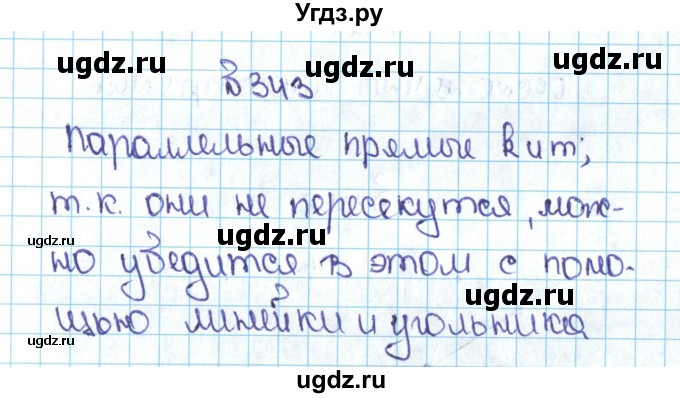 Угдз.ру
ugdz.ru ugdz.ru
№343
параллельные прямые k и m;
ugdz.ru
т.к. они не пересекутся, мож-
ugdz.ru ugdz.ru
но убедится в этом с помо-
ugdz.ru
щью линейки и угольника
ugdz.ru
ugdz.ru